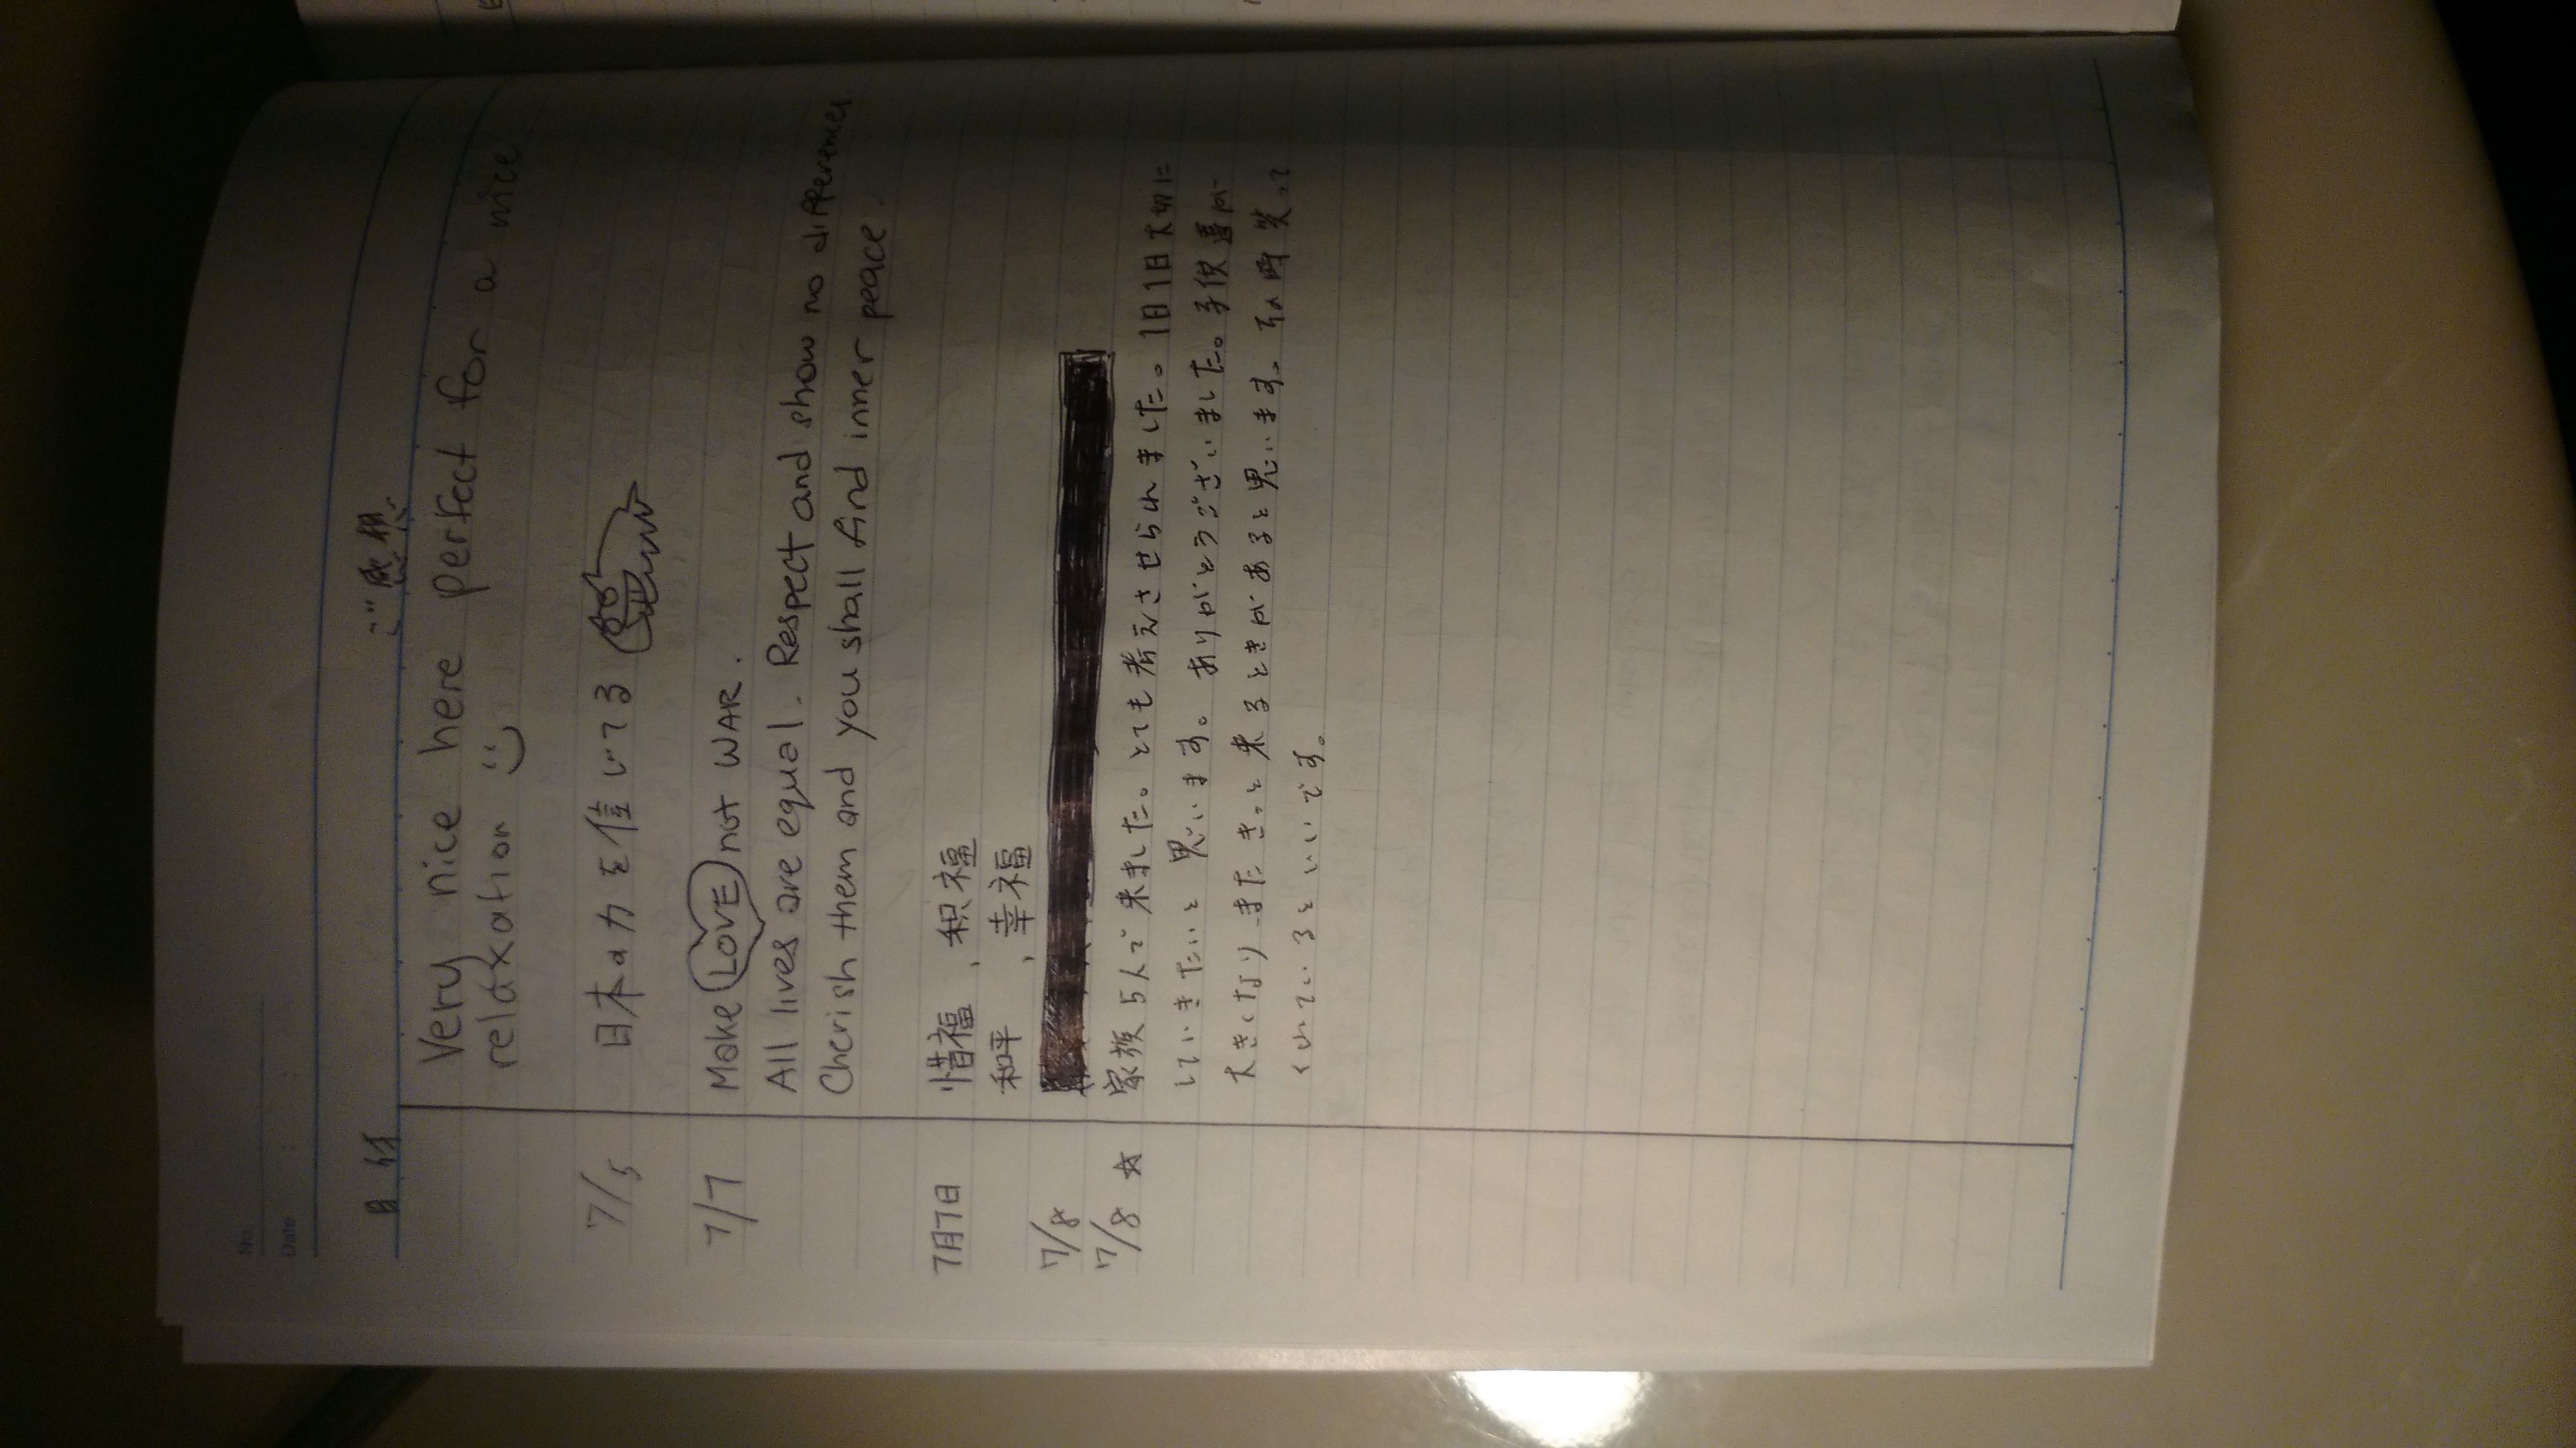 No.
Date
日付
ご感想
Very nice here perfect for a nice
relaxation
7/5 日本の力を信じてる
7/7 Make LOVE not WAR.
All lives are equal. Respect and show no differences
Cherish them and you shall find inner peace.
7月7日 惜福、积福
和平、幸福
7/8
7/8 ☆ 家族5人で来ました。とても考えさせられました。1日1日大切に
していきたいと思います。ありがとうございました。子供達が
大きくなりまたきっと来るときがあると思います。その時笑って
くれているといいです。